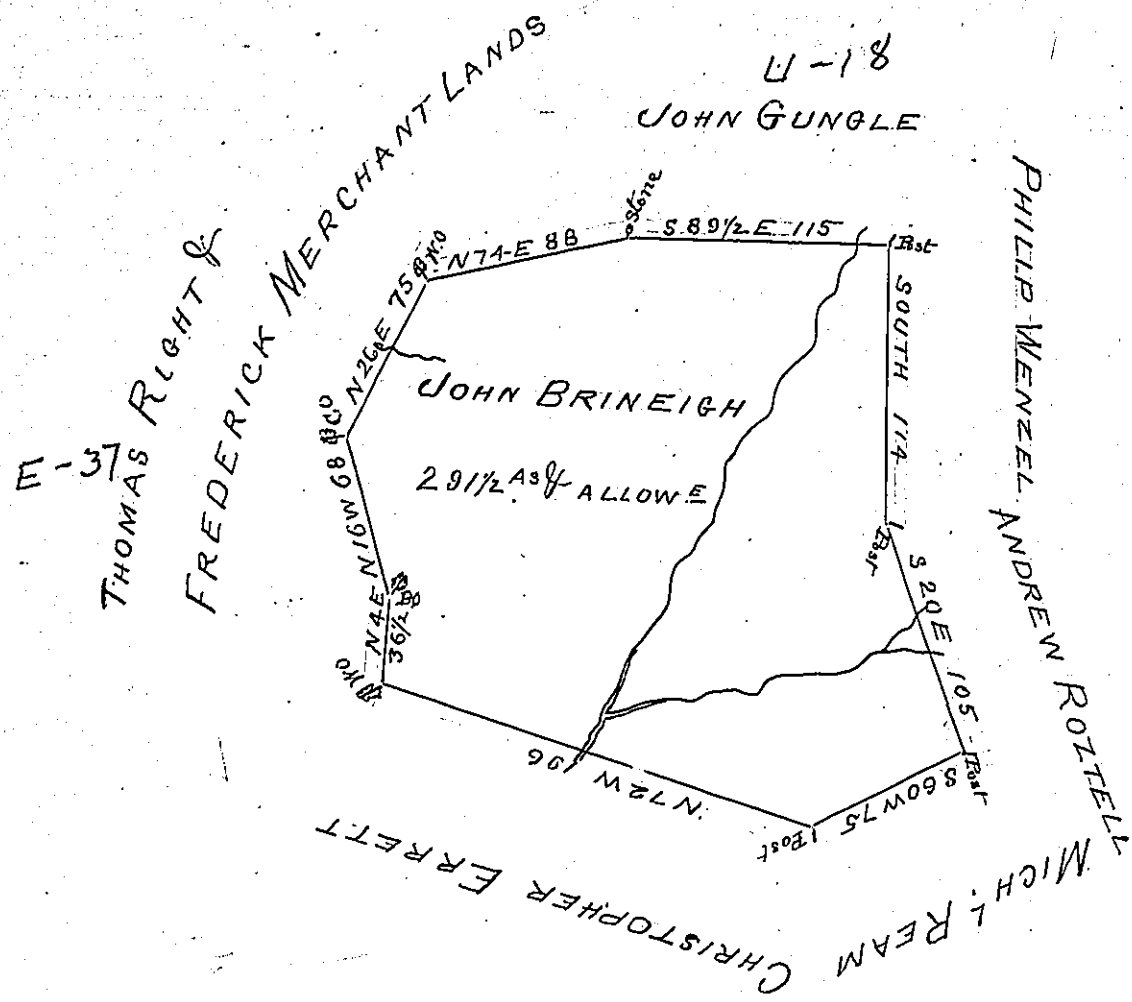 U-18
JOHN GUNGLE
THOMAS RIGHT &
FREDERICK MERCHANT LANDS
E-37
PHILLP WENZEL
ANDREW ROZTELL
MICHL REAM
CHRISTOPHER ERRETT
JOHN BRINEIGH
291 1/2 AS & ALLOWE
Stone
S 89 1/2 E 115
Post
SOUTH 114
Post
S 20 E 105
Post
S 60 W 75
Post
N 72 W 196
WO
N 4 E
36 1/2
N 16 W 68
N 26 E 75
N 74 E 88